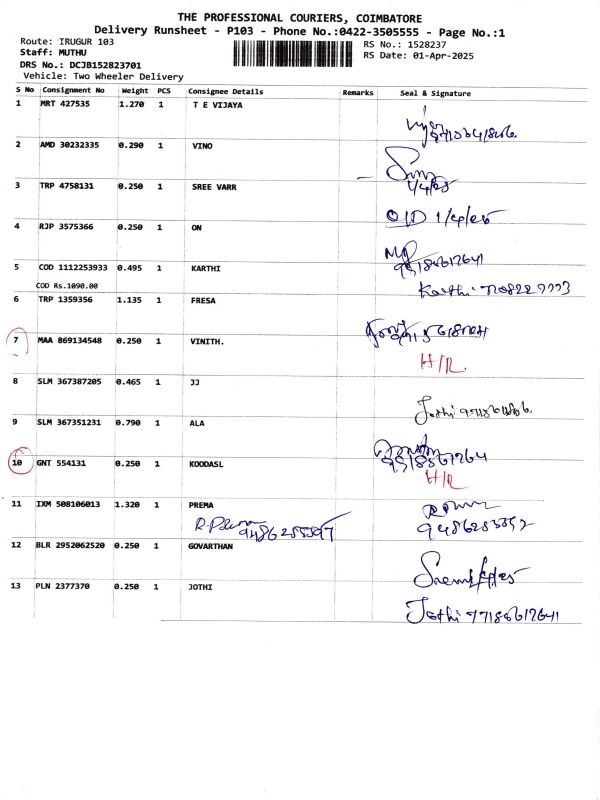 THE PROFESSIONAL COURIERS, COIMBATORE
Delivery Runsheet - P103 - Phone No.:0422-3505555 - Page No.:1
Route: IRUGUR 103
RS No.: 1528237
Staff: MUTHU
RS Date: 01-Apr-2025
DRS No.: DCJB152823701
Vehicle: Two Wheeler Delivery
S No Consignment No Weight PCS Consignee Details Remarks Seal & Signature
1 MRT 427535 1.270 1 T E VIJAYA
2 AMD 30232335 0.290 1 VINO
1/4/25
3 TRP 4758131 0.250 1 SREE VARR
1/4/25
4 RJP 3575366 0.250 1 ON
5 COD 1112253933 0.495 1 KARTHI
COD Rs.1090.00
Karthi
6 TRP 1359356 1.135 1 FRESA
7 MAA 869134548 0.250 1 VINITH.
H/R.
8 SLM 367387205 0.465 1 JJ
Jothi
9 SLM 367351231 0.790 1 ALA
10 GNT 554131 0.250 1 KOODASL
H/R
11 IXM 508106013 1.320 1 PREMA
12 BLR 2952062520 0.250 1 GOVARTHAN
13 PLN 2377370 0.250 1 JOTHI
Jothi